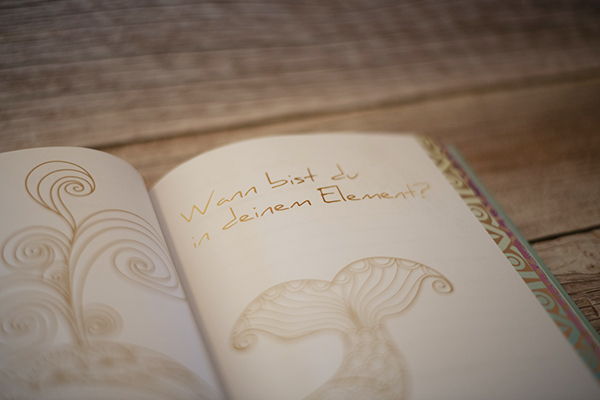 Wann bist du
in deinem Element?